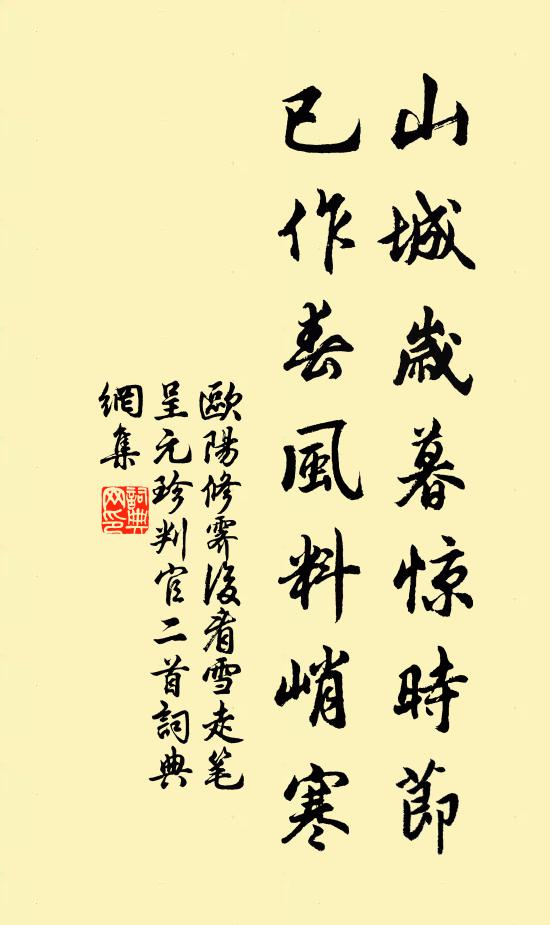 山城歲暮惊時節
已作春風料峭寒
歐陽修霽後看雪走笔
呈元珍判官二首詞典
網集
詞典
网印